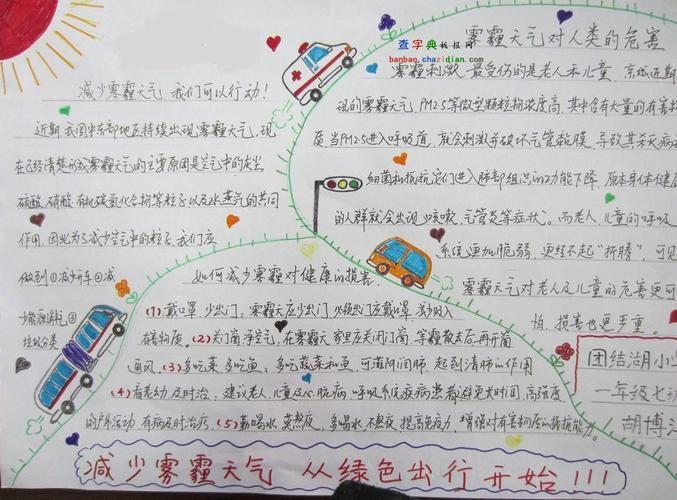 查字典板报网
banbao.chazidian.com
减少雾霾天气 我们可以行动!
近期我国中东部地区持续出现雾霾天气,现
在已经清楚形成雾霾天气的主要原因是空气中的灰尘
硫酸、硝酸、有机碳氢化合物等粒子以及水蒸气的共同
作用,因此为了减少空气中的粒子,我们应
做到①减少开车②减
少能源消耗③
垃圾分类
雾霾天气对人类的危害
雾霾刺激,最受伤的是老人和儿童,京城近期
现的雾霾天气,PM2.5等微型颗粒物浓度高,其中含有大量的有害物
质,当PM2.5进入呼吸道,就会刺激并破坏气管黏膜,导致其杀灭病毒
细菌和抵抗它们进入肺部组织的功能下降,原本身体健康
的人群就会出现咳嗽、气管炎等症状。而老人、儿童的呼吸
系统更加脆弱,更经不起"折腾",可见
雾霾天气对老人及儿童的危害更可
怕,损害也更严重。
如何减少雾霾对健康的损害
(1)戴口罩,少出门,雾霾天应少出门,必须出门应戴口罩,减少吸入
有害物质。(2)关门窗,净空气,在雾霾天,家里应关闭门窗,等雾散去后再开窗
通风,(3)多吃菜,多吃鱼,多吃蔬菜和鱼,可滋阴润肺,起到清肺的作用
(4)看老幼,及时治,建议老人、儿童及心脑病、呼吸系统疾病患者避免长时间,高强度
的户外活动,有病及时治疗,(5)勤喝水,莫熬夜,多喝水,不熬夜,提高免疫力,增强对有害物质的抵抗能力。
团结湖小学
一年级七班
胡博
减少雾霾天气 从绿色出行开始!!!